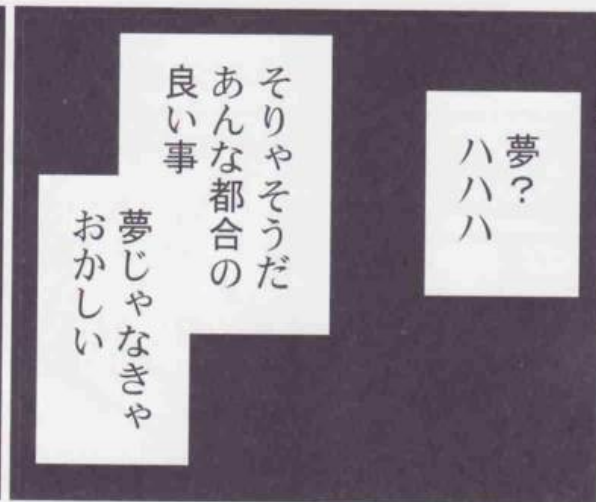 夢?
ハハハ
そりゃそうだ
あんな都合の
良い事
夢じゃなきゃ
おかしい